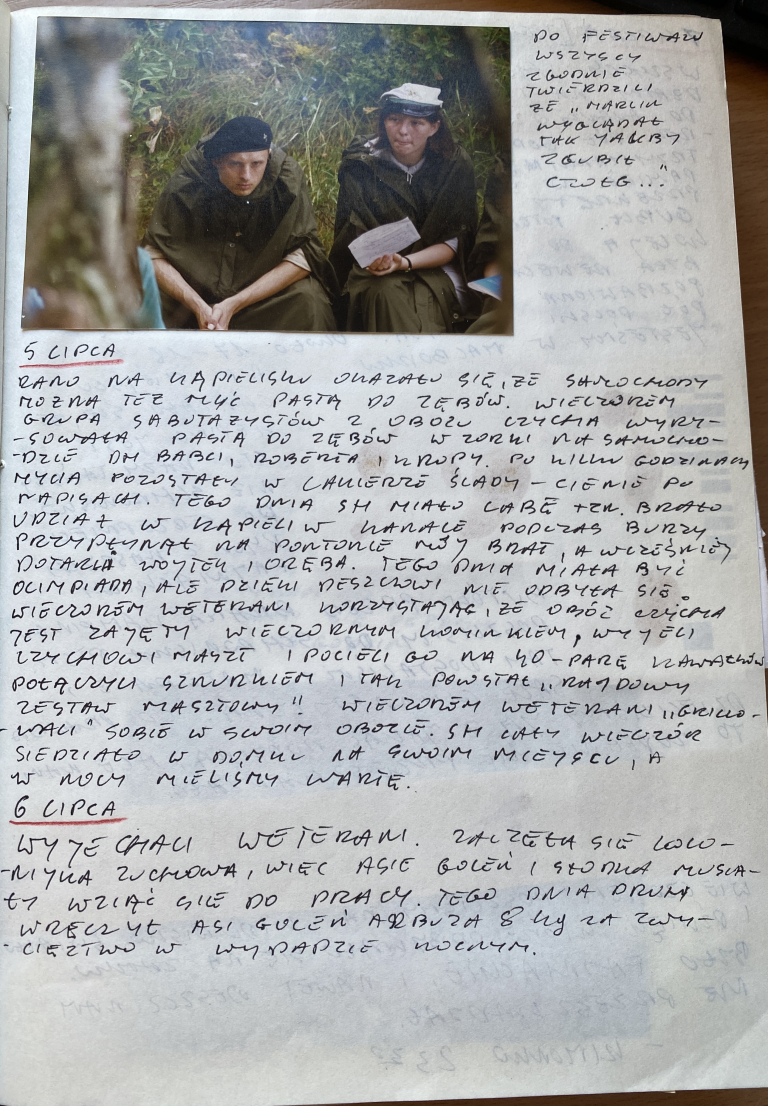 DO FESTIWALU
WSZYSCY
ZGODNIE
TWIERDZILI
ŻE „MARLIN
WYGLĄDAŁ
TAK JAKBY
ZGUBIŁ
CZOŁG..."
5 LIPCA
RANO NA KĄPIELISKU OKAZAŁO SIĘ, ŻE SAMOCHODY
MOŻNA TEŻ MYĆ PASTĄ DO ZĘBÓW. WIECZOREM
GRUPA SABOTAŻYSTÓW Z OBOZU CZYCHA WYRY-
-SOWAŁA PASTĄ DO ZĘBÓW WZORKI NA SAMOCHO-
-DZIE DH BABCI, ROBERTA I KROPY. PO KILKU GODZINACH
MYCIA POZOSTAŁY W LAKIERZE ŚLADY – CIENIE PO
NAPISACH. TEGO DNIA SH MIAŁO LABĘ TZN. BRAŁO
UDZIAŁ W KĄPIELI W KANALE PODCZAS BURZY
PRZYPŁYNĄŁ NA PONTONIE MÓJ BRAT, A WCZEŚNIEJ
DOTARLI WOJTEK I ORĘBA. TEGO DNIA MIAŁA BYĆ
OLIMPIADA, ALE DZIĘKI DESZCZOWI NIE ODBYŁA SIĘ.
WIECZOREM WETERANI KORZYSTAJĄC, ŻE OBÓZ CZYCHA
JEST ZAJĘTY WIECZORNYM KOMINKIEM, WYJĘLI
CZYCHOWI MASZT I POCIĘLI GO NA 40-PARĘ KAWAŁKÓW
POŁĄCZYLI SZNURKIEM I TAK POWSTAŁ „RAJDOWY
ZESTAW MASZTOWY"! WIECZOREM WETERANI „GRILLO-
-WALI" SOBIE W SWOIM OBOZIE. SH CAŁY WIECZÓR
SIEDZIAŁO W DOMKU NA SWOIM MIEJSCU, A
W NOCY MIELIŚMY WARTĘ.
6 LIPCA
WYJECHALI WETERANI. ZACZĘŁA SIĘ KOLO-
-NIJKA ZUCHOWA, WIĘC ASIE GOLEŃ I SŁODKA MUSIA-
-ŁY WZIĄĆ SIĘ DO PRACY. TEGO DNIA DRUH
WRĘCZYŁ ASI GOLEŃ ARBUZA 8 kg ZA ZWY-
-CIĘZTWO W WYPADZIE NOCNYM.